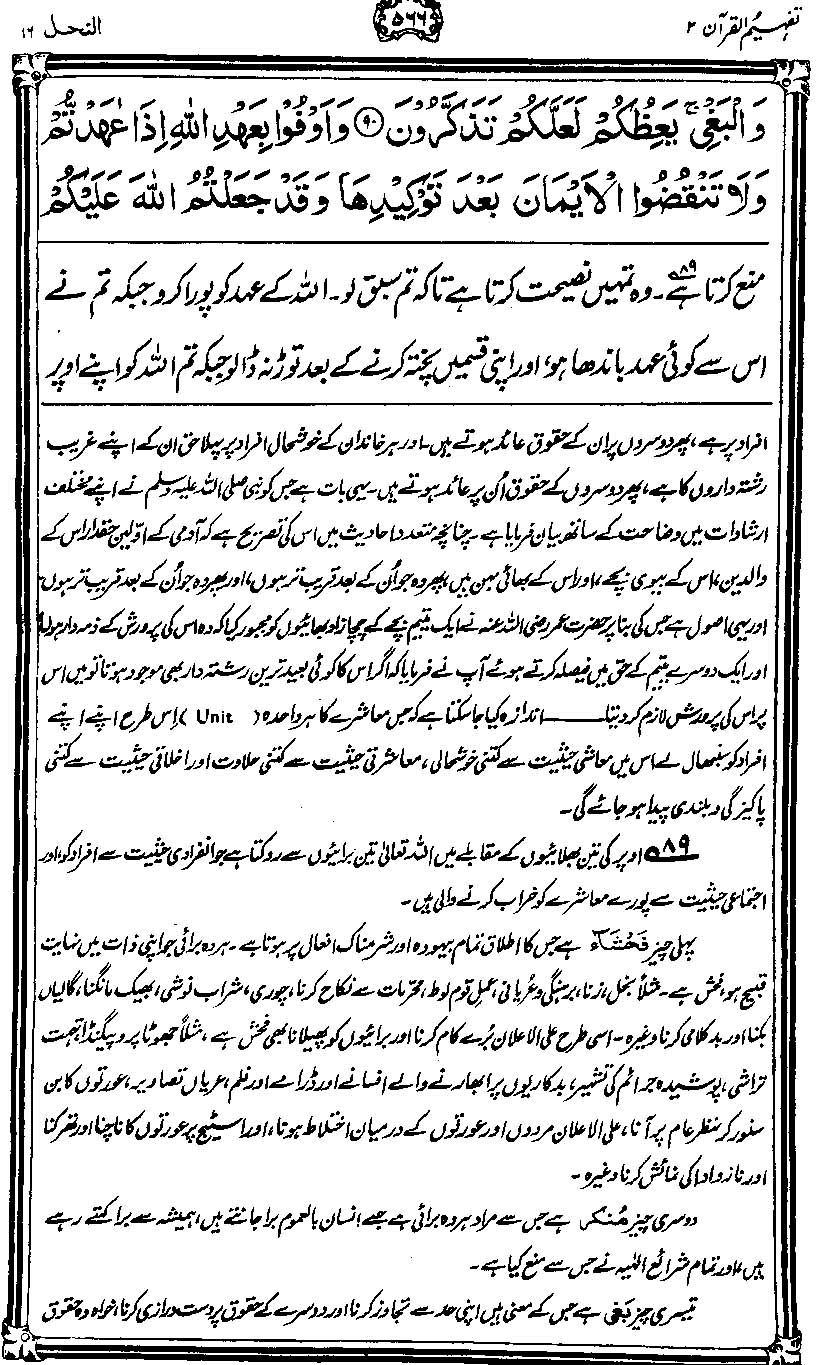 تفہیم القرآن ۲
۵۶۶
النحل ۱۶
وَالْبَغْيِ ۚ يَعِظُكُمْ لَعَلَّكُمْ تَذَكَّرُوْنَ ﴿۹۰﴾ وَاَوْفُوْا بِعَهْدِ اللّٰهِ اِذَا عٰهَدْتُّمْ
وَلَا تَنْقُضُوا الْاَيْمَانَ بَعْدَ تَوْكِيْدِهَا وَقَدْ جَعَلْتُمُ اللّٰهَ عَلَيْكُمْ
منع کرتا ہے۸۹۔ وہ تمہیں نصیحت کرتا ہے تاکہ تم سبق لو۔ اللہ کے عہد کو پورا کرو جبکہ تم نے
اس سے کوئی عہد باندھا ہو، اور اپنی قسمیں پختہ کرنے کے بعد توڑ نہ ڈالو جبکہ تم اللہ کو اپنے اوپر
افراد پر ہے، پھر دوسروں پر ان کے حقوق عائد ہوتے ہیں۔ اور ہر خاندان کے خوشحال افراد پر پہلا حق ان کے اپنے غریب
رشتہ داروں کا ہے، پھر دوسروں کے حقوق اُن پر عائد ہوتے ہیں۔ یہی بات ہے جس کو نبی صلی اللہ علیہ وسلم نے اپنے مختلف
ارشادات میں وضاحت کے ساتھ بیان فرمایا ہے۔ چنانچہ متعدد احادیث میں اس کی تصریح ہے کہ آدمی کے اوّلین حقدار اس کے
والدین، اس کے بیوی بچے، اور اس کے بھائی بہن ہیں، پھر وہ جو اُن کے بعد قریب تر ہوں، اور پھر وہ جو اُن کے بعد قریب تر ہوں۔
اور یہی اصول ہے جس کی بنا پر حضرت عمر رضی اللہ عنہ نے ایک یتیم بچے کے چچازاد بھائیوں کو مجبور کیا کہ وہ اس کی پرورش کے ذمہ دار ہوں۔
اور ایک دوسرے یتیم کے حق میں فیصلہ کرتے ہوئے آپ نے فرمایا کہ اگر اس کا کوئی بعید ترین رشتہ دار بھی موجود ہوتا تو میں اس
پر اس کی پرورش لازم کر دیتا ــــــــ اندازہ کیا جا سکتا ہے کہ جس معاشرے کا ہر واحدہ (Unit) اِس طرح اپنے اپنے
افراد کو سنبھال لے اس میں معاشی حیثیت سے کتنی خوشحالی، معاشرتی حیثیت سے کتنی حلاوت اور اخلاقی حیثیت سے کتنی
پاکیزگی و بلندی پیدا ہو جائے گی۔
۸۹؎ اوپر کی تین بھلائیوں کے مقابلے میں اللہ تعالیٰ تین برائیوں سے روکتا ہے جو انفرادی حیثیت سے افراد کو، اور
اجتماعی حیثیت سے پورے معاشرے کو خراب کرنے والی ہیں۔
پہلی چیز فَحْشَاء ہے جس کا اطلاق تمام بیہودہ اور شرمناک افعال پر ہوتا ہے۔ ہر وہ برائی جو اپنی ذات میں نہایت
قبیح ہو، فحش ہے۔ مثلاً بخل، زنا، برہنگی و عُریانی، عمل قوم لوط، محرمات سے نکاح کرنا، چوری، شراب نوشی، بھیک مانگنا، گالیاں
بکنا اور بدکلامی کرنا وغیرہ۔ اسی طرح علی الاعلان بُرے کام کرنا اور برائیوں کو پھیلانا بھی فحش ہے، مثلاً جھوٹا پروپیگنڈا، تہمت
تراشی، پوشیدہ جرائم کی تشہیر، بدکاریوں پر ابھارنے والے افسانے اور ڈرامے اور فلم، عریاں تصاویر، عورتوں کا بن
سنور کر منظرِ عام پر آنا، علی الاعلان مردوں اور عورتوں کے درمیان اختلاط ہونا، اور اسٹیج پر عورتوں کا ناچنا اور تھرکنا
اور ناز و ادا کی نمائش کرنا وغیرہ۔
دوسری چیز مُنکر ہے جس سے مراد ہر وہ برائی ہے جسے انسان بالعموم برا جانتے ہیں، ہمیشہ سے برا کہتے رہے
ہیں، اور تمام شرائع الٰہیہ نے جس سے منع کیا ہے۔
تیسری چیز بَغی ہے جس کے معنی ہیں اپنی حد سے تجاوز کرنا اور دوسرے کے حقوق پر دست درازی کرنا، خواہ وہ حقوق